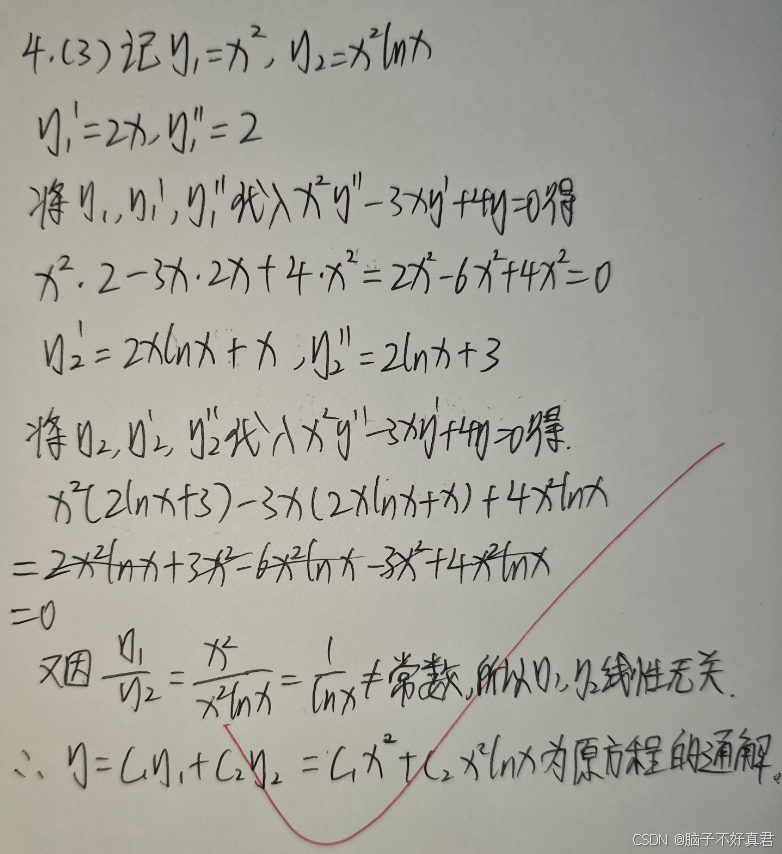 4.(3)记y₁=x², y₂=x²lnx
y₁'=2x, y₁''=2
将y₁,y₁',y₁''代入x²y''-3xy'+4y=0得
x²·2-3x·2x+4·x²=2x²-6x²+4x²=0
y₂'=2xlnx+x, y₂''=2lnx+3
将y₂,y₂',y₂''代入x²y''-3xy'+4y=0得.
x²(2lnx+3)-3x(2xlnx+x)+4x²lnx
=2x²lnx+3x²-6x²lnx-3x²+4x²lnx
=0
又因 y₁/y₂ = x²/x²lnx = 1/lnx ≠常数,所以y₁,y₂线性无关.
∴ y=C₁y₁+C₂y₂=C₁x²+C₂x²lnx为原方程的通解。
CSDN @脑子不好真君